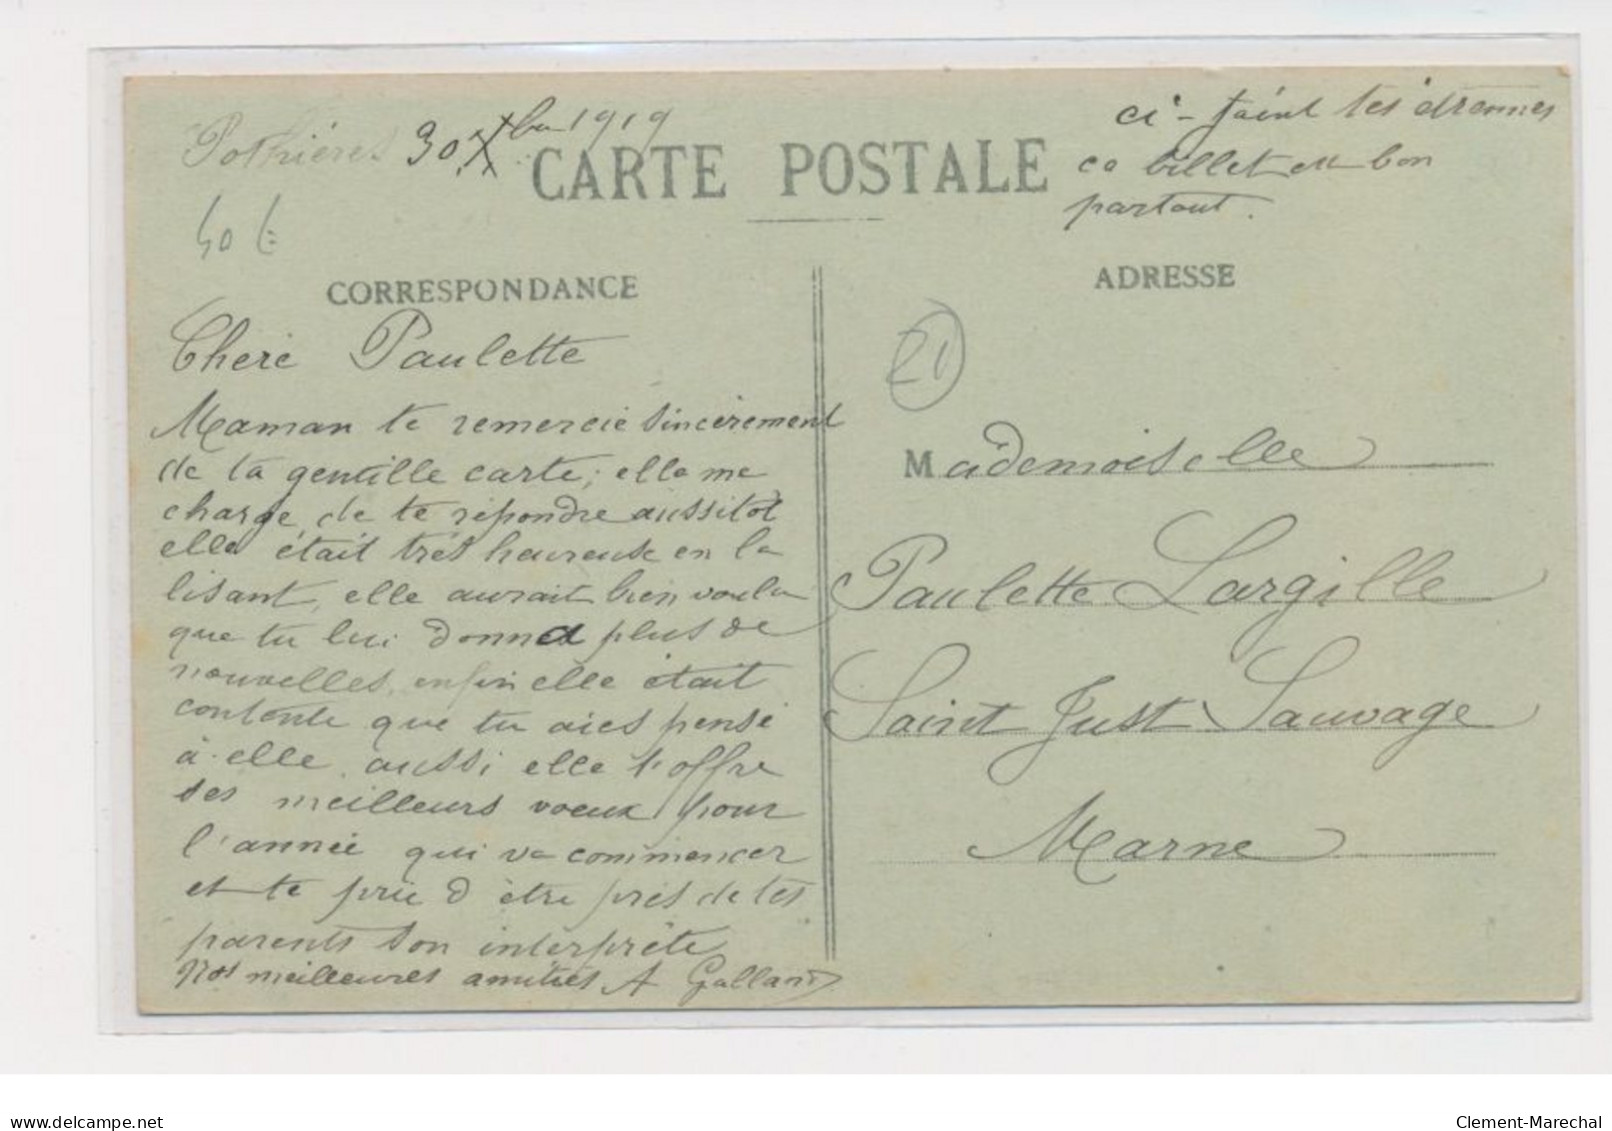 Pothières 30 Xbre 1919
ci-joint tes étrennes
ce billet est bon
partout.
40 €
CARTE POSTALE
CORRESPONDANCE
ADRESSE
21
Chère Paulette
Maman te remercie sincèrement
de ta gentille carte; elle me
charge de te répondre aussitôt
elle était très heureuse en la
lisant, elle aurait bien voulu
que tu lui donna plus de
nouvelles, enfin elle était
contente que tu aies pensé
à elle, aussi elle t'offre
ses meilleurs voeux pour
l'année qui va commencer
et te prie d'être près de tes
parents son interprète
Nos meilleures amitiés A Galland
Mademoiselle
Paulette Largille
Saint Just Sauvage
Marne
www.delcampe.net
Clement-Marechal